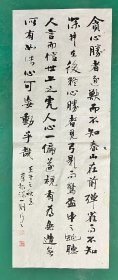 貪心勝者逐獸而不知泰山在前彈雀而不知
深井在後疑心勝者見弓影而驚盃中之蛇聽
人言而信市上之虎人心一偏遂視有為無造無
作有如此心可妄動乎哉